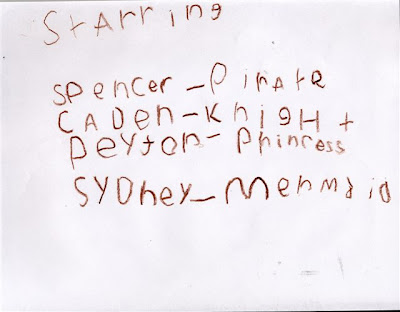 StARRing
SPENCER - PiRATE
CADEn - KnigHt
PEyTon - PRincess
SYDney - MERMAiD